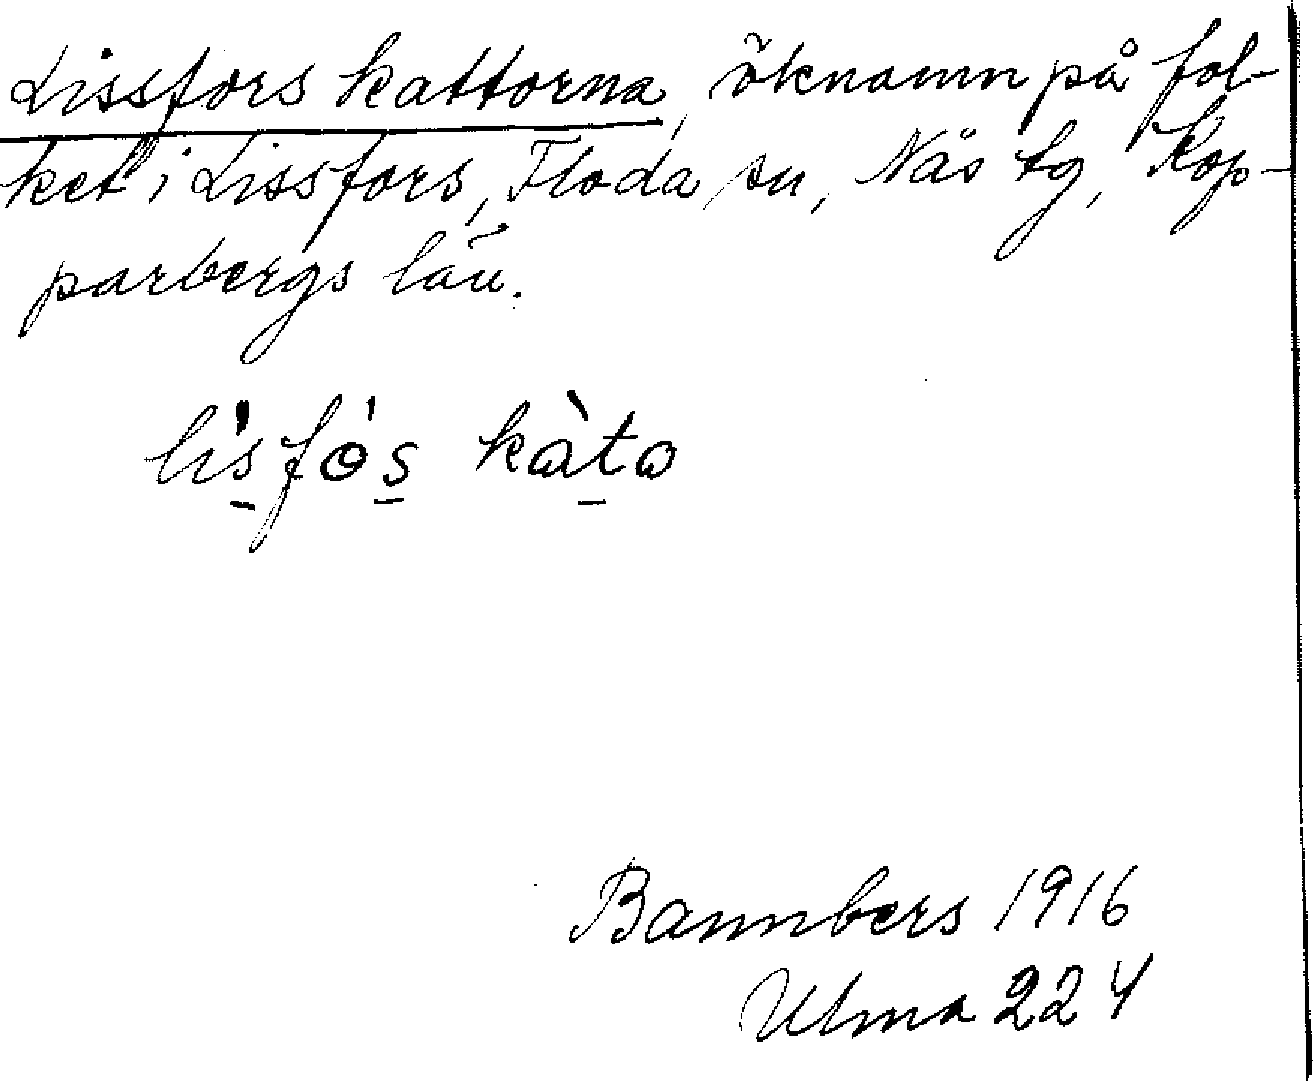 Lissfors kattorna, öknamn på fol-
ket i Lissfors, Floda sn, Näs tg, Kop-
parbergs län.
lisfǫs kàta
Bannbers 1916
Ulma 224